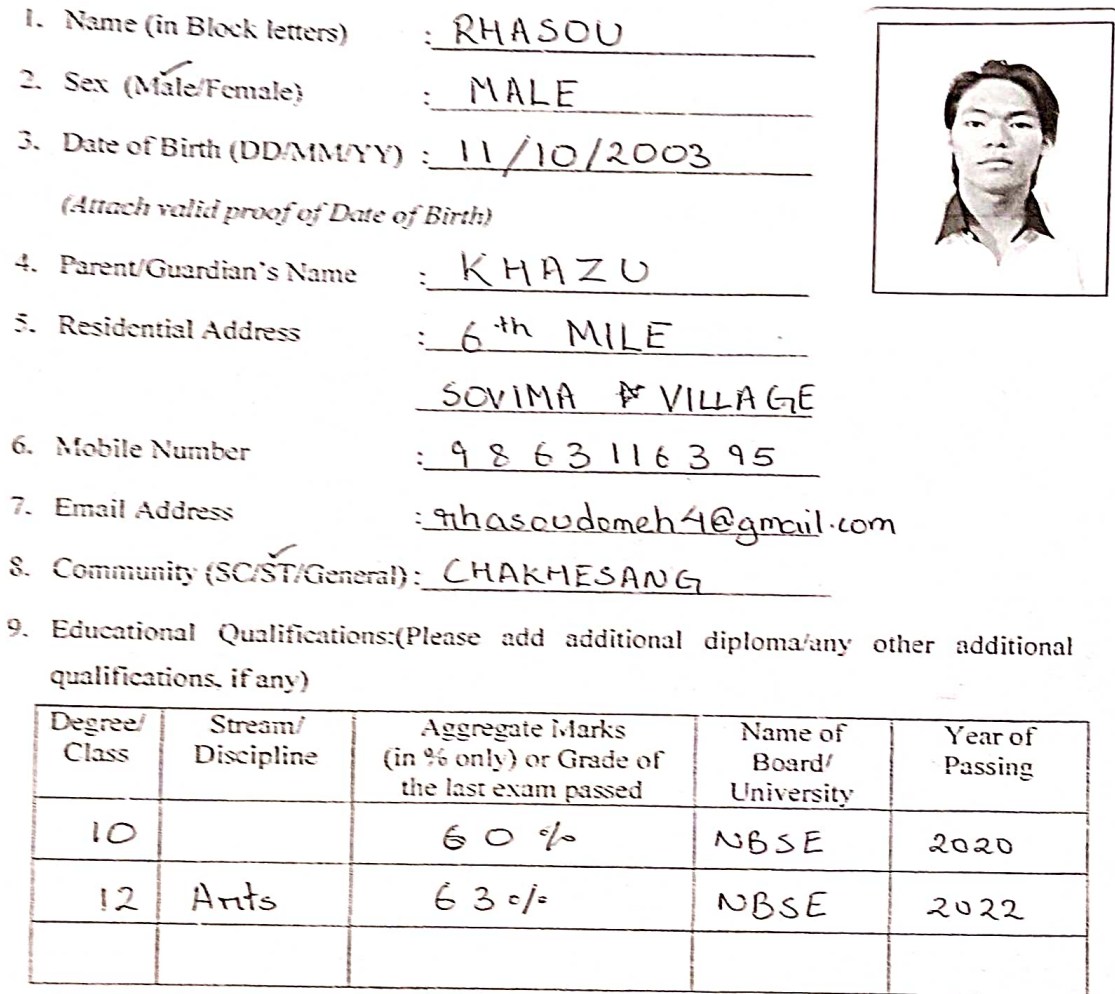 1. Name (in Block letters) : RHASOU
2. Sex (Male/Female) : MALE
3. Date of Birth (DD/MM/YY) : 11/10/2003
(Attach valid proof of Date of Birth)
4. Parent/Guardian's Name : KHAZU
5. Residential Address : 6th MILE
SOVIMA VILLAGE
6. Mobile Number : 9863116395
7. Email Address : rhasoudomeh4@gmail.com
8. Community (SC/ST/General) : CHAKHESANG
9. Educational Qualifications:(Please add additional diploma/any other additional
qualifications, if any)
Degree/ Stream/ Aggregate Marks Name of Year of
Class Discipline (in % only) or Grade of Board/ Passing
the last exam passed University
10 60 % NBSE 2020
12 Arts 63 % NBSE 2022